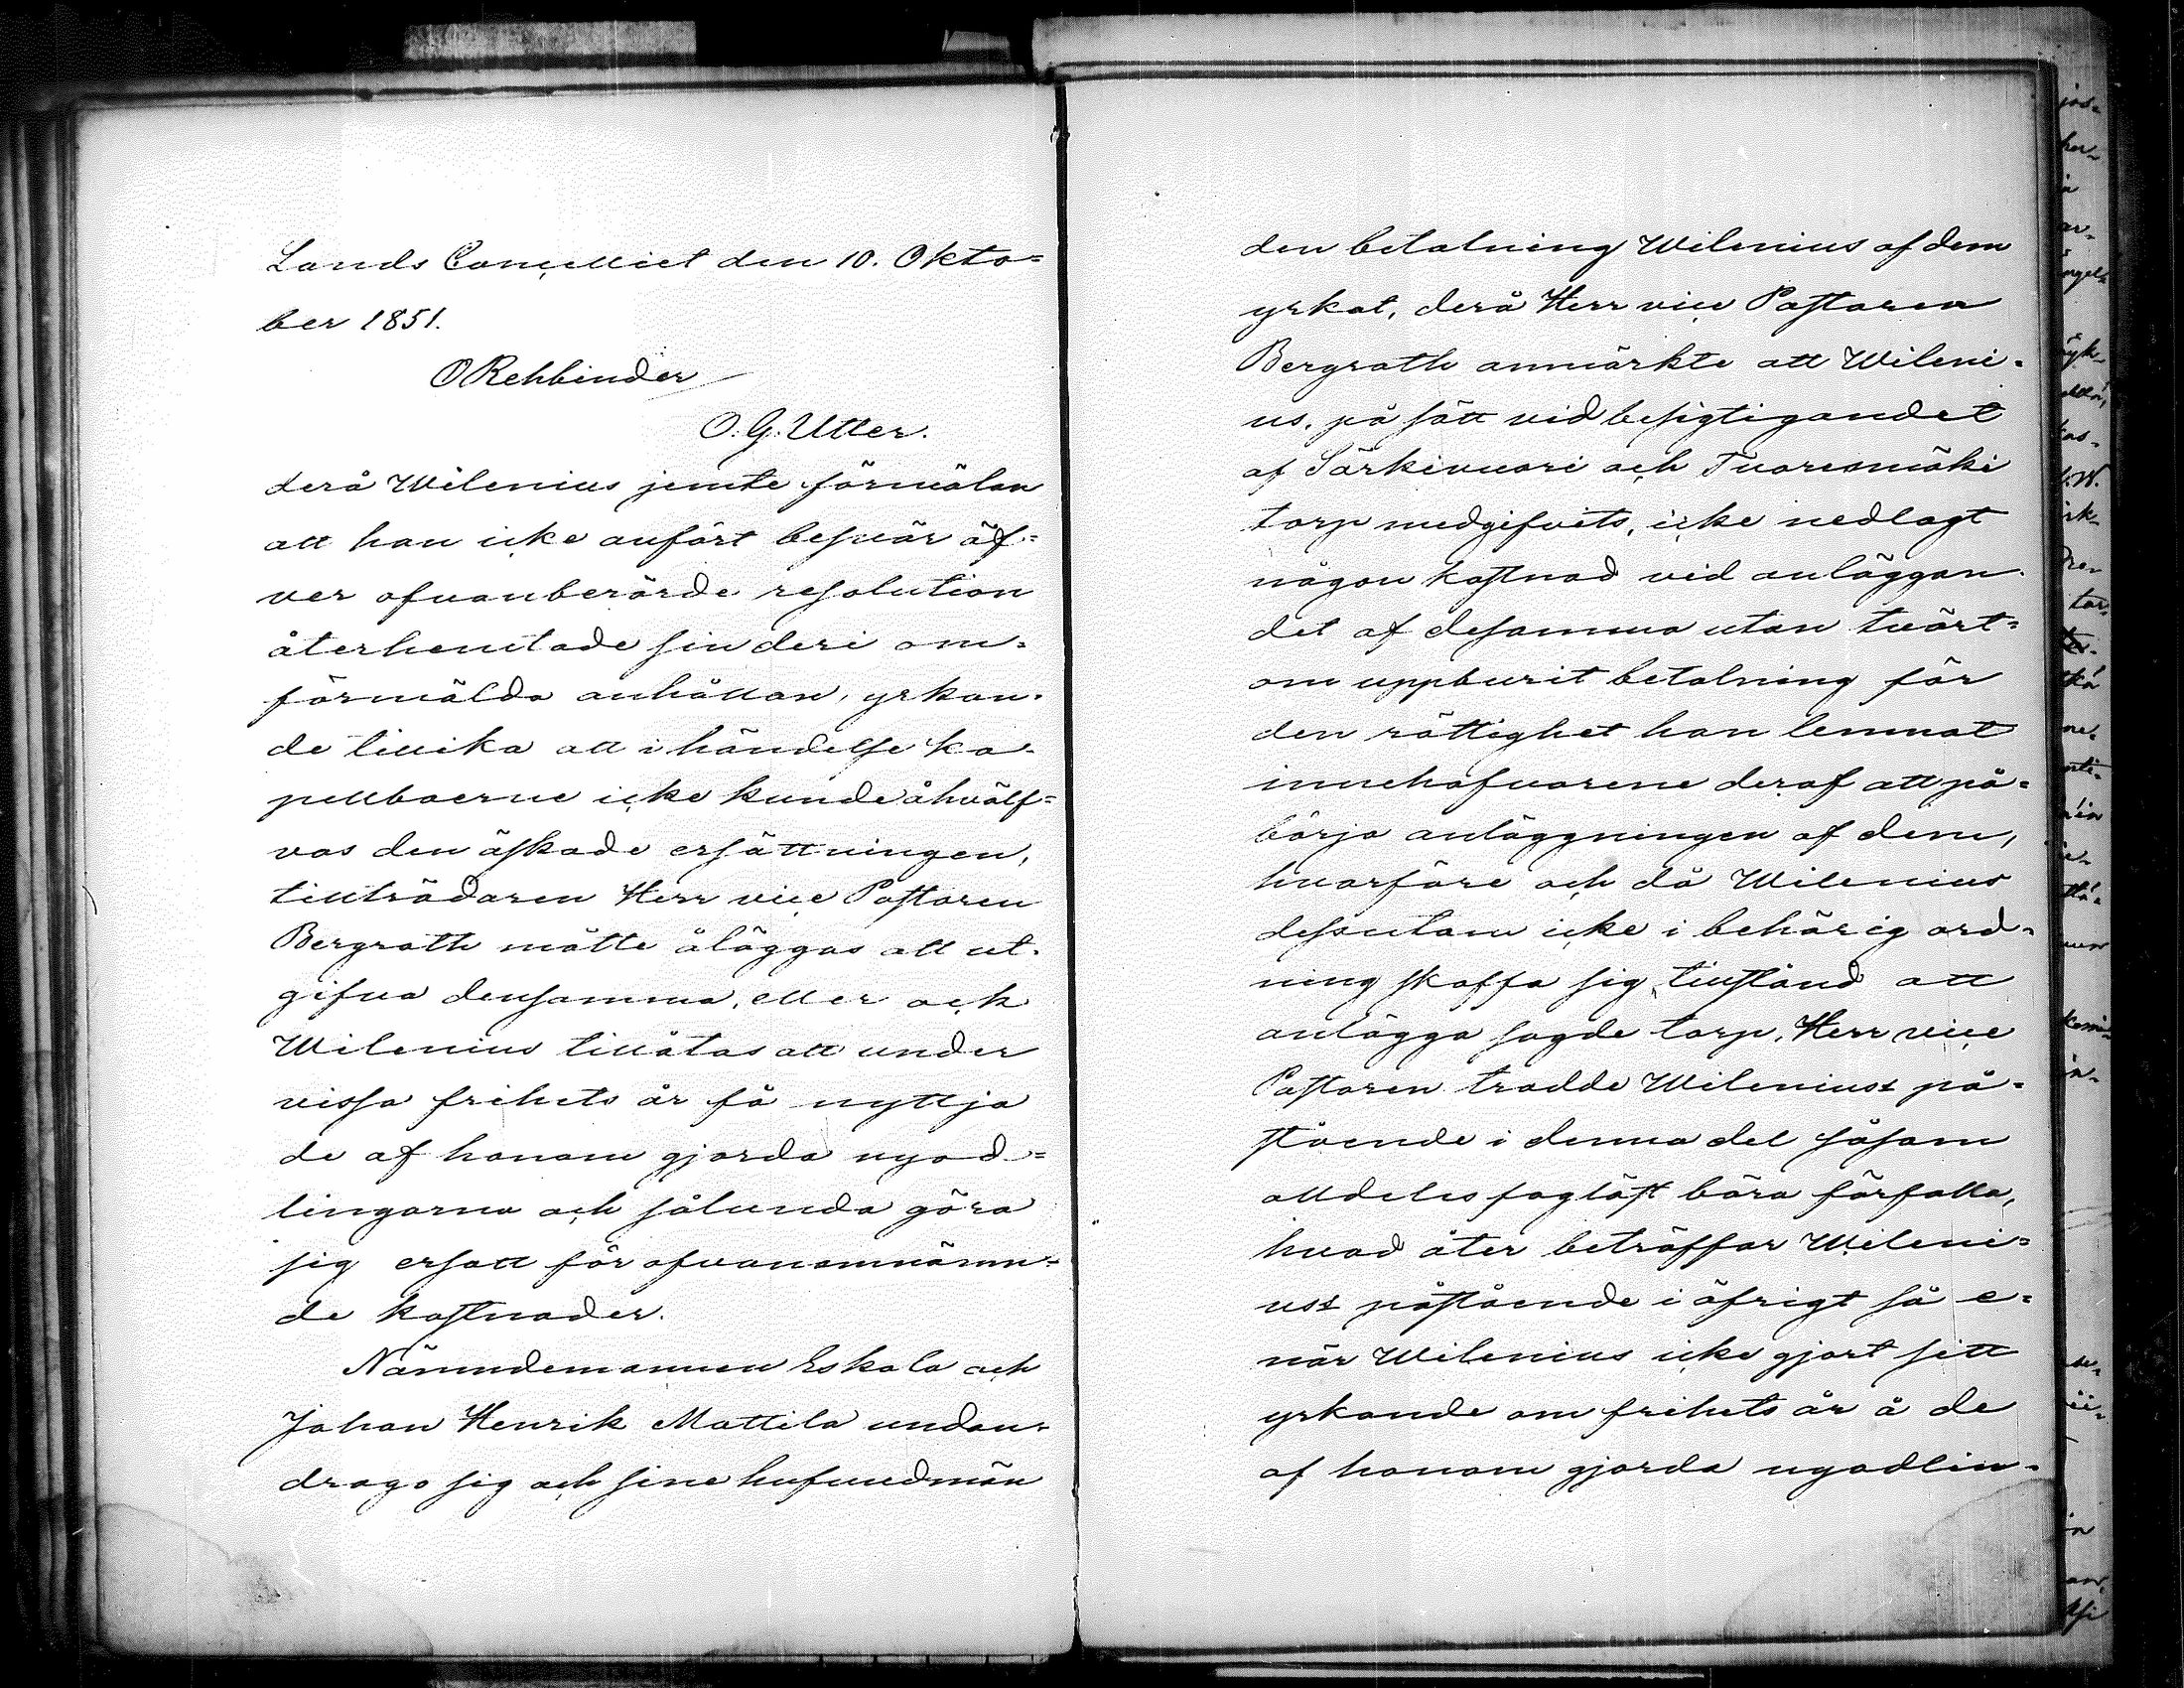 Lands Cancelliet den 10. Okto=
ber 1851.
O Rehbinder
O. G. Utter.
derå Wilenius jemte förmälan
att han icke anfört besvär öf=
ver ofvanberörde resolution
återhemtade sin deri om=
förmälda anhållan, yrkan=
de tillika att i händelse ka=
pellboerne icke kunde åhvälf=
vas den äskade ersättningen,
tillträdaren Herr vice Pastoren
Bergroth måtte åläggas att ut=
gifva densamma, eller ock
Wilenius tillåtas att under
vissa frihets år få nyttja
de af honom gjorda nyod=
lingarna och sålunda göra
sig ersatt för ofvanomnämn=
de kostnader.
Nämndemannen Eskola och
Johan Henrik Mattila undan=
drogo sig och sine hufvudmän
den betalning Wilenius af dem
yrkat, derå Herr vice Pastoren
Bergroth anmärkte att Wileni=
us, på sätt vid besigtigandet
af Särkivuori och Tuoresmäki
torp medgifvits, icke nedlagt
någon kostnad vid anläggan=
det af desamma utan tvärt=
om uppburit betalning för
den rättighet han lemnat
innehafvarene deraf att på=
börja anläggningen af dem,
hvarföre och då Wilenius
dessutom icke i behörig ord=
ning skaffa sig tillstånd att
anlägga sagde torp, Herr vice
Pastoren trodde Wileniuss på=
stående i denna del såsom
alldeles foglöst böra förfalla,
hvad åter beträffar Wileni=
uss påstående i öfrigt så e=
när Wilenius icke gjort sitt
yrkande om frihets år å de
af honom gjorda nyodlin=